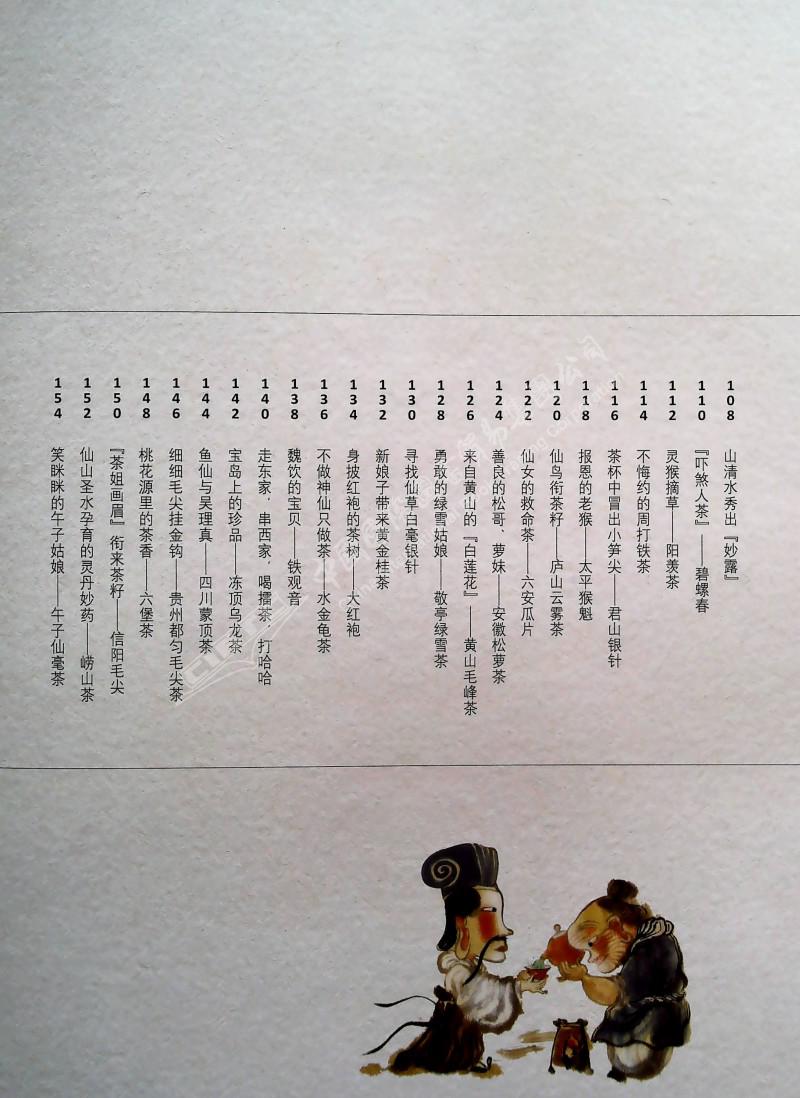 108 山清水秀出『妙露』
110 『吓煞人茶』——碧螺春
112 灵猴摘草——阳羡茶
114 不悔约的周打铁茶
116 茶杯中冒出小笋尖——君山银针
118 报恩的老猴——太平猴魁
120 仙鸟衔茶籽——庐山云雾茶
122 仙女的救命茶——六安瓜片
124 善良的松哥、萝妹——安徽松萝茶
126 来自黄山的『白莲花』——黄山毛峰茶
128 勇敢的绿雪姑娘——敬亭绿雪茶
130 寻找仙草白毫银针
132 新娘子带来黄金桂茶
134 身披红袍的茶树——大红袍
136 不做神仙只做茶——水金龟茶
138 魏饮的宝贝——铁观音
140 走东家，串西家，喝擂茶，打哈哈
142 宝岛上的珍品——冻顶乌龙茶
144 鱼仙与吴理真——四川蒙顶茶
146 细细毛尖挂金钩——贵州都匀毛尖茶
148 桃花源里的茶香——六堡茶
150 『茶姐画眉』衔来茶籽——信阳毛尖
152 仙山圣水孕育的灵丹妙药——崂山茶
154 笑眯眯的午子姑娘——午子仙毫茶